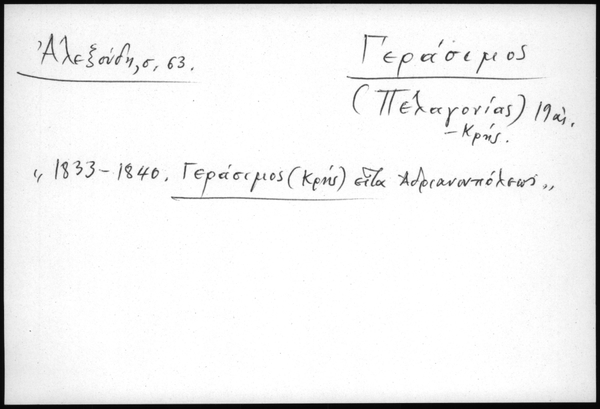 Ἀλεξούδη, σ. 63.
Γεράσιμος
(Πελαγονίας) 19 αἰ.
– Κρής.
„ 1833 – 1840. Γεράσιμος (Κρής) εἶτα Ἀδριανουπόλεως „